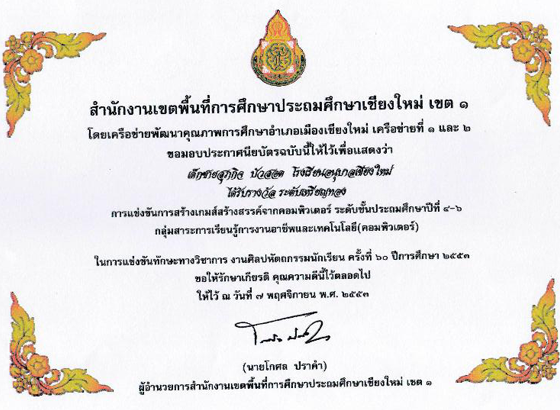 สำนักงานเขตพื้นที่การศึกษาประถมศึกษาเชียงใหม่ เขต ๑
โดยเครือข่ายพัฒนาคุณภาพการศึกษาอำเภอเมืองเชียงใหม่ เครือข่ายที่ ๑ และ ๒
ขอมอบประกาศนียบัตรฉบับนี้ให้ไว้เพื่อแสดงว่า
เด็กชายสุภกิจ บัวสอด โรงเรียนอนุบาลเชียงใหม่
ได้รับรางวัล ระดับเหรียญทอง
การแข่งขันการสร้างเกมส์สร้างสรรค์จากคอมพิวเตอร์ ระดับชั้นประถมศึกษาปีที่ ๔-๖
กลุ่มสาระการเรียนรู้การงานอาชีพและเทคโนโลยี(คอมพิวเตอร์)
ในการแข่งขันทักษะทางวิชาการ งานศิลปหัตถกรรมนักเรียน ครั้งที่ ๖๐ ปีการศึกษา ๒๕๕๓
ขอให้รักษาเกียรติ คุณความดีนี้ไว้ตลอดไป
ให้ไว้ ณ วันที่ ๗ พฤศจิกายน พ.ศ. ๒๕๕๓
(นายโกศล ปราคำ)
ผู้อำนวยการสำนักงานเขตพื้นที่การศึกษาประถมศึกษาเชียงใหม่ เขต ๑